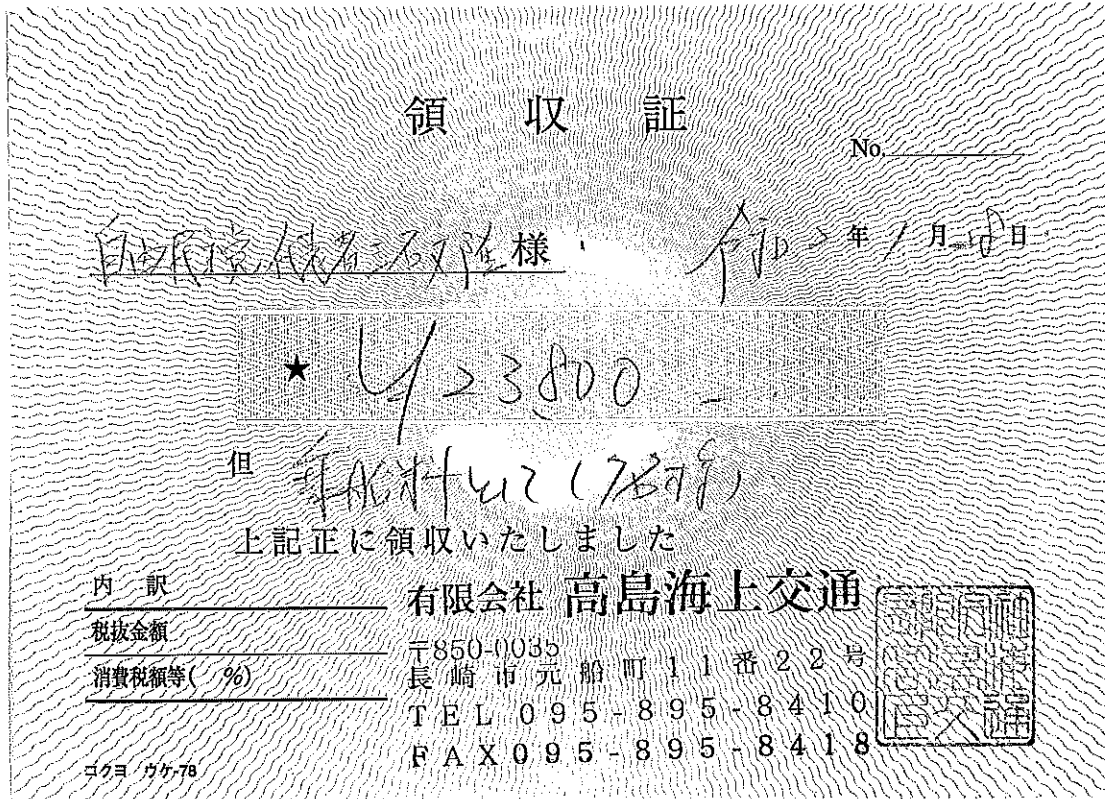 領収証
No.
自由民主党 様 令和 年 1月 日
★ ¥23800-
但 乗船料として
上記正に領収いたしました
内訳
税抜金額
消費税額等( %)
有限会社 高島海上交通
〒850-0035
長崎市元船町11番22号
TEL 095-895-8410
FAX 095-895-8418
コクヨ ウケ-78